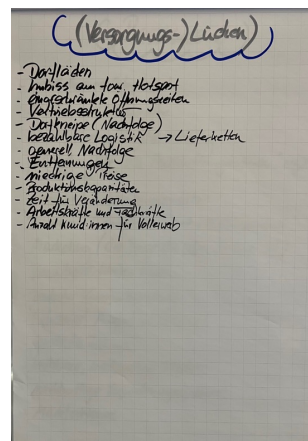 (Versorgungs-) Lücken
- Dorfläden
- Imbiss am tour. Hotspot
- eingeschränkte Öffnungszeiten
- Vertriebsstruktur
- Dorfkneipe (Nachfolge)
- bezahlbare Logistik → Lieferketten
- generell Nachfolge
- Entfernungen
- niedrige Preise
- Produktionskapazitäten
- Zeit für Veränderung
- Arbeitskräfte und Fachkräfte
- Anzahl Kund:innen für Vollerwerb